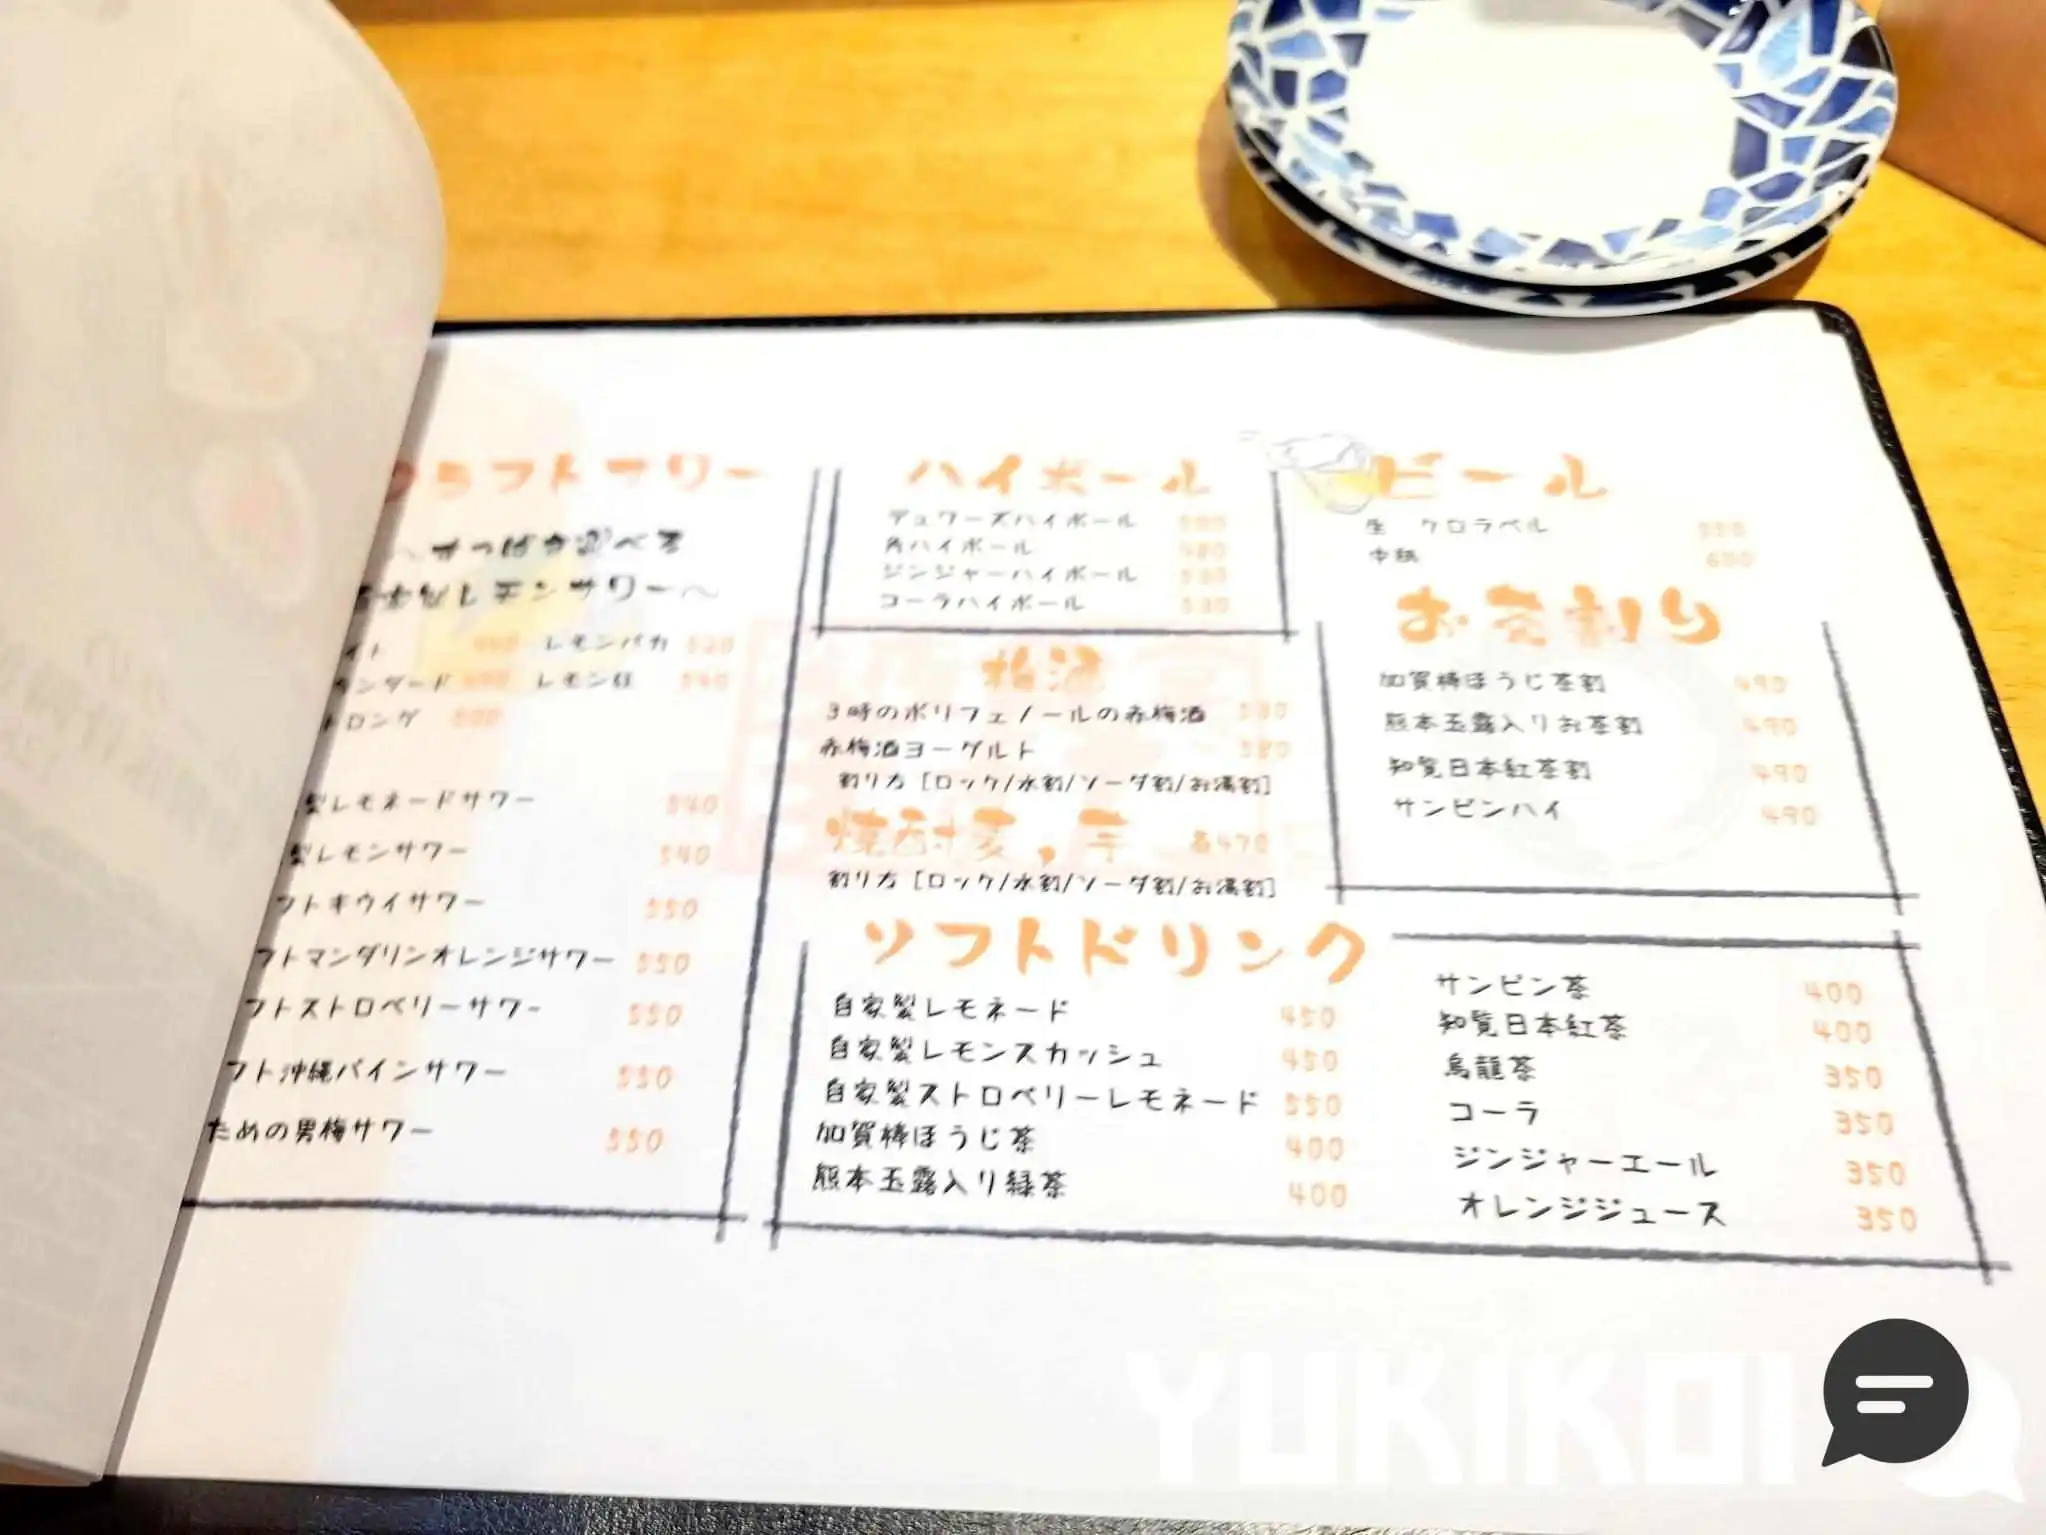 クラフトサワー
〜すっぱさ選べる
自家製レモンサワー〜
イト レモンバカ 520
タンダード レモン狂 540
トロング 500
製レモネードサワー 540
製レモンサワー 540
フトキウイサワー 550
フトマンダリンオレンジサワー 550
フトストロベリーサワー 550
フト沖縄パインサワー 550
ための男梅サワー 550
ハイボール
デュワーズハイボール 500
角ハイボール 480
ジンジャーハイボール 530
コーラハイボール 530
梅酒
3時のポリフェノールの赤梅酒 530
赤梅酒ヨーグルト 580
割り方 [ロック/水割/ソーダ割/お湯割]
焼酎麦,芋 各470
割り方 [ロック/水割/ソーダ割/お湯割]
ビール
生 クロラベル 550
中瓶 600
お茶割り
加賀棒ほうじ茶割 490
熊本玉露入りお茶割 490
知覧日本紅茶割 490
サンピンハイ 490
ソフトドリンク
自家製レモネード 450
自家製レモンスカッシュ 450
自家製ストロベリーレモネード 550
加賀棒ほうじ茶 400
熊本玉露入り緑茶 400
サンピン茶 400
知覧日本紅茶 400
烏龍茶 350
コーラ 350
ジンジャーエール 350
オレンジジュース 350
YUKIKOI